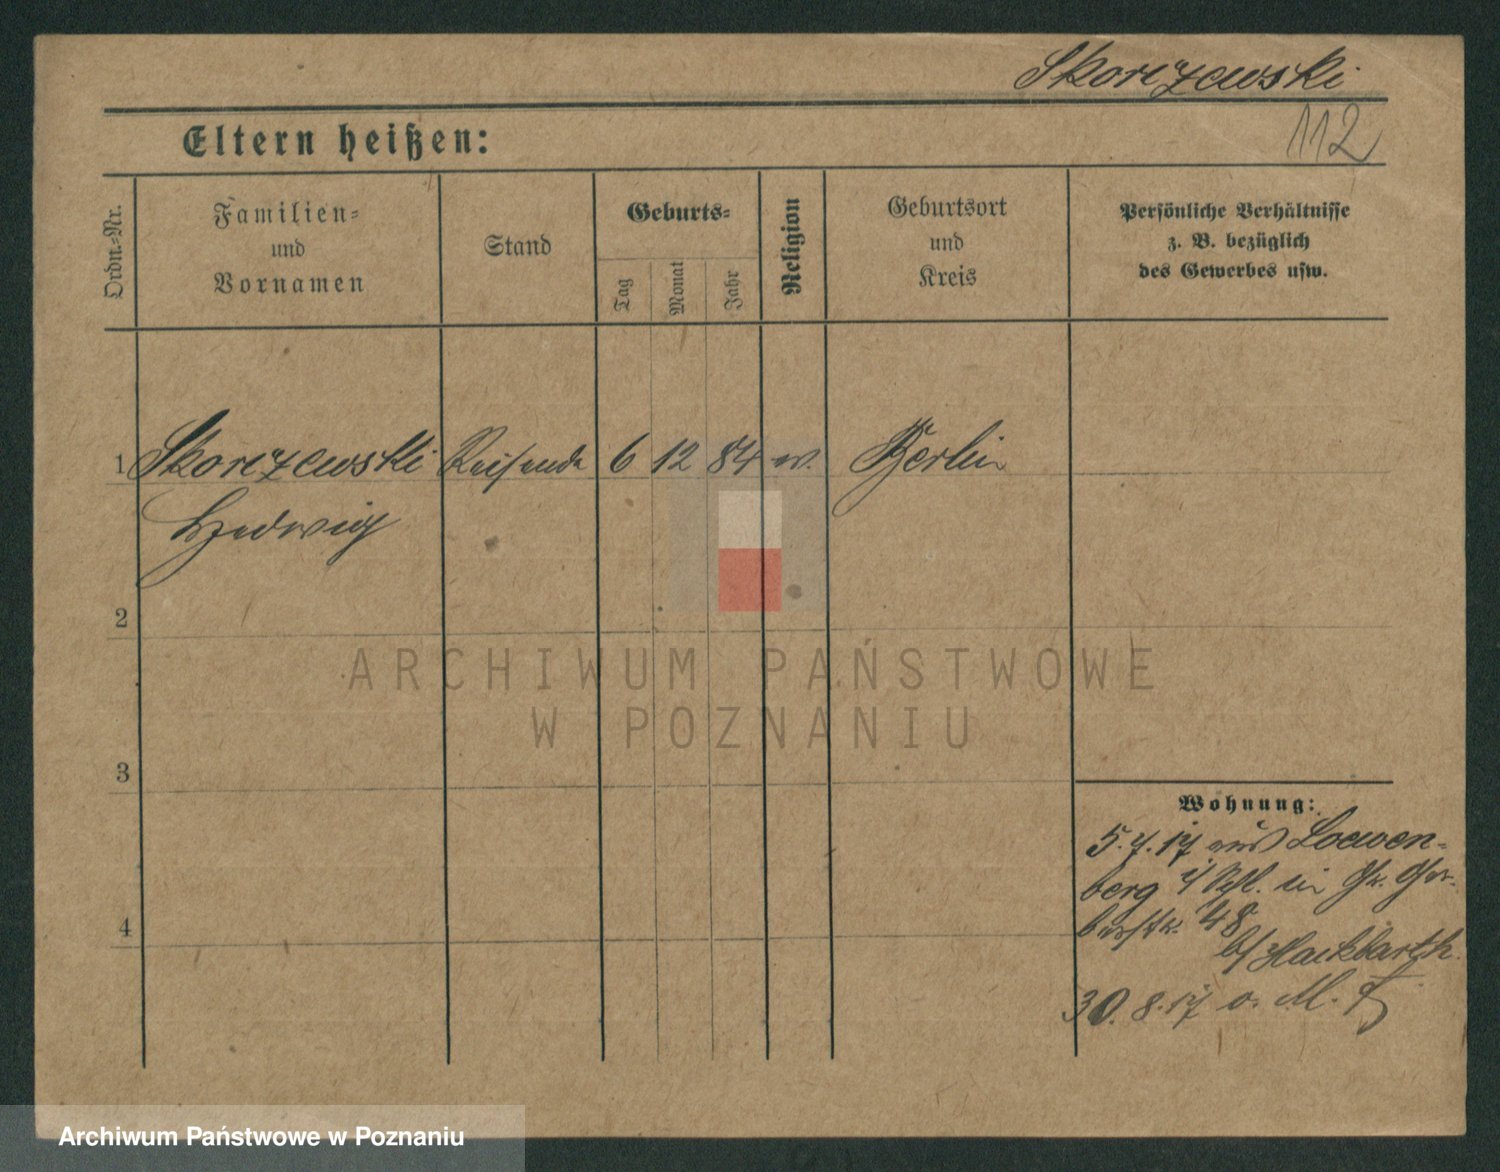 Skorczewski
112
Eltern heißen:
Ordn.-Nr.
Familien-
und
Vornamen
Stand
Geburts-
Tag
Monat
Jahr
Religion
Geburtsort
und
Kreis
Persönliche Verhältnisse
z. B. bezüglich
des Gewerbes usw.
1 Skorczewski Reisende 6 12 84 ev. Berlin
Hedwig
2
3
4
Wohnung:
5.7.17 aus Loewen-
berg i/Schl. in Gr. Ger-
berstr. 48
b/ Hackbarth.
30.8.17 o. M.
ARCHIWUM PAŃSTWOWE
W POZNANIU
Archiwum Państwowe w Poznaniu